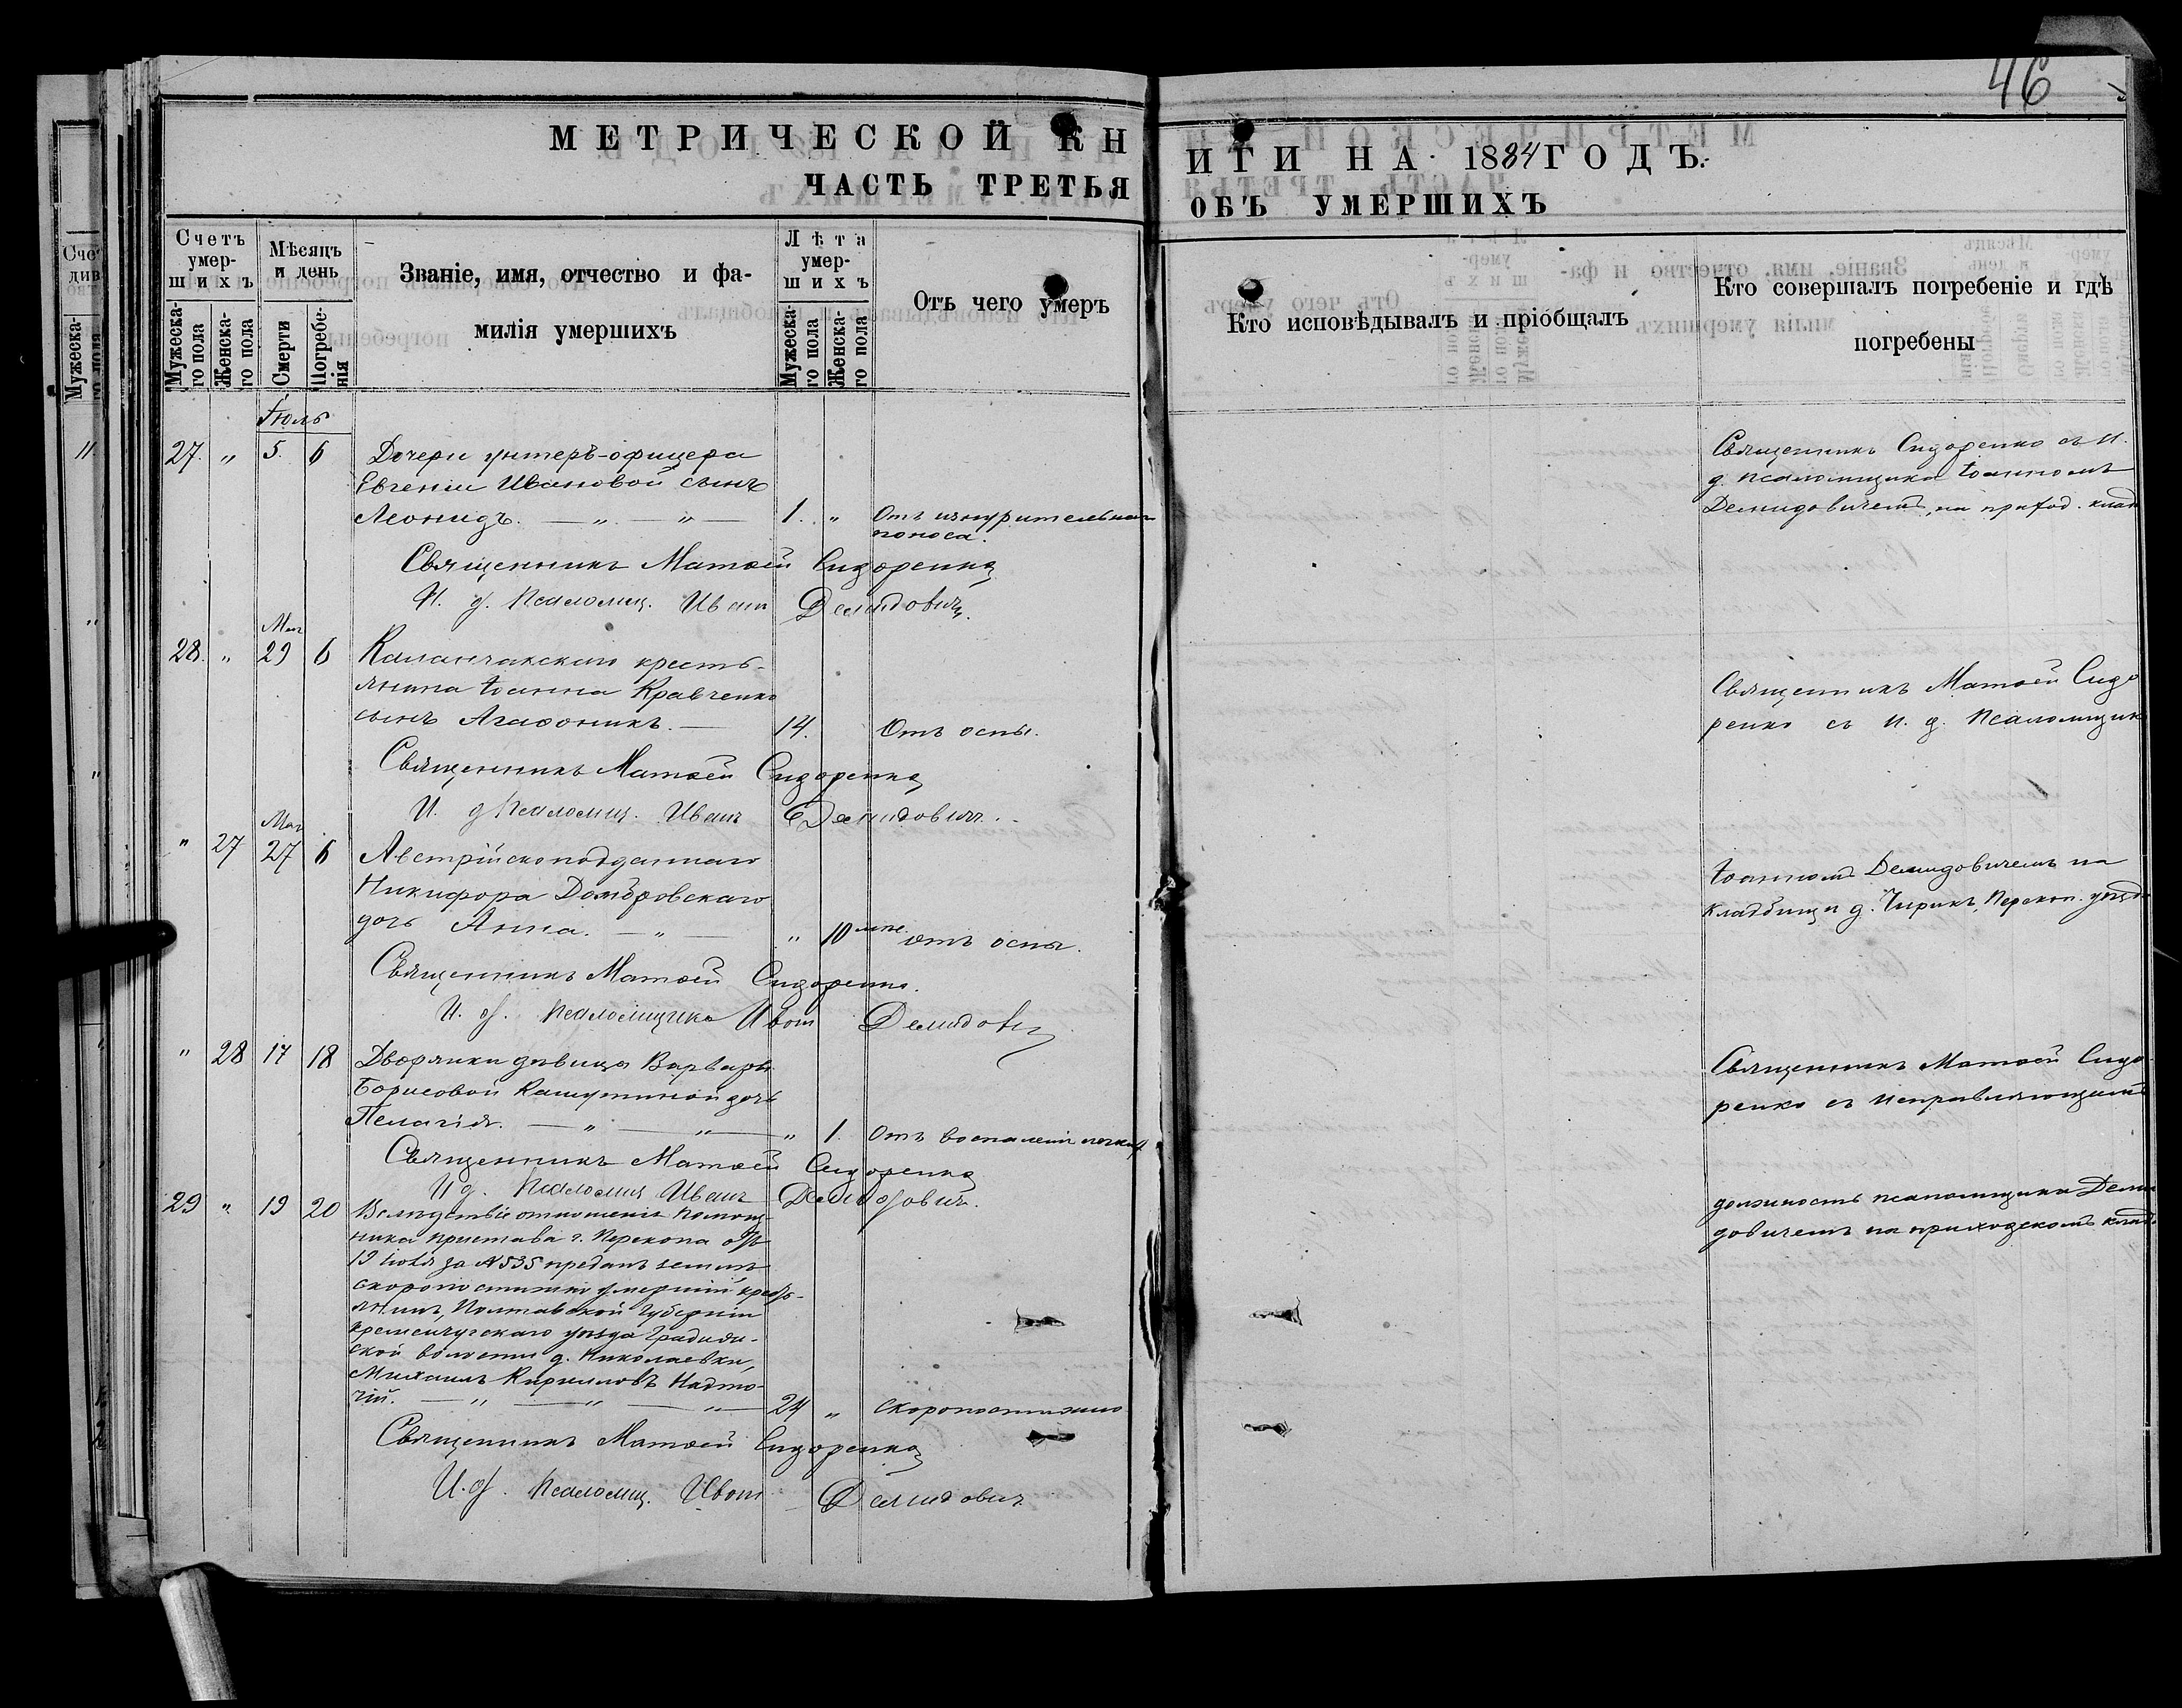 46
МЕТРИЧЕСКОЙ КН
ИГИ НА 1884 ГОДЪ.
ЧАСТЬ ТРЕТЬЯ
ОБЪ УМЕРШИХЪ
Счетъ умер-
шихъ
Мужеска-
го пола
Женска-
го пола
Мѣсяцъ
и день
Смерти
Погребе-
нія
Званіе, имя, отчество и фа-
милія умершихъ
Лѣта
умер-
шихъ
Мужеска-
го пола
Женска-
го пола
Отъ чего умеръ
Кто исповѣдывалъ и пріобщалъ
Кто совершалъ погребеніе и гдѣ
погребены
Іюль
27. " 5. 6 Дочери унтеръ-офицера
Евгеніи Ивановой сынъ
Леонидъ. — " — " — 1. " Отъ изнурительнаго
поноса.
Священникъ Сидоренко съ и.
д. псаломщика Іоанномъ
Демидовичемъ, на приход. клад
Священникъ Матѳей Сидоренко
И. д. Псаломщ. Иванъ Демидовичъ.
Мая
28. " 29 6 Каланчакскаго кресть-
янина Іоанна Кравченко
сынъ Агаѳоникъ. — 14. Отъ оспы.
Священникъ Матѳей Сидо
ренко съ и. д. Псаломщик
Священникъ Матѳей Сидоренко
И. д. Псаломщ. Иванъ Демидовичъ.
Мая
" 27 27 6 Австрійскоподданнаго
Никифора Домбровскаго
дочь Анна. — " — " 10 мѣс. отъ оспы.
Іоанномъ Демидовичемъ на
кладбищи д. Чирикъ, Перекоп. уѣзд
Священникъ Матѳей Сидоренко.
И. д. Псаломщика Иванъ Демидович
" 28 17 18 Дворянки дѣвицы Варвары
Борисовой дочь
Пелагія. — " — " — " 1. Отъ воспаленія легких
Священникъ Матѳей Сидо-
ренко съ исправляющимъ
Священникъ Матѳей Сидоренко
И д. Псаломщ Иванъ Демидовичъ.
29 " 19 20 Вслѣдствіе отношенія помощ-
ника пристава г. Перекопа отъ
19 Іюля за № 535 преданъ землѣ
скоропостижно умершій кресть-
янинъ, Полтавской губерніи
Кременчугскаго уѣзда Градиж-
ской волости д. Николаевки,
Михаилъ Кирилловъ Надто-
чій. — " — " — " — 24 " Скоропостижно
должность псаломщика Деми
довичемъ на приходскомъ кладб
Священникъ Матѳей Сидоренко
И. д. Псаломщ. Иванъ Демидович